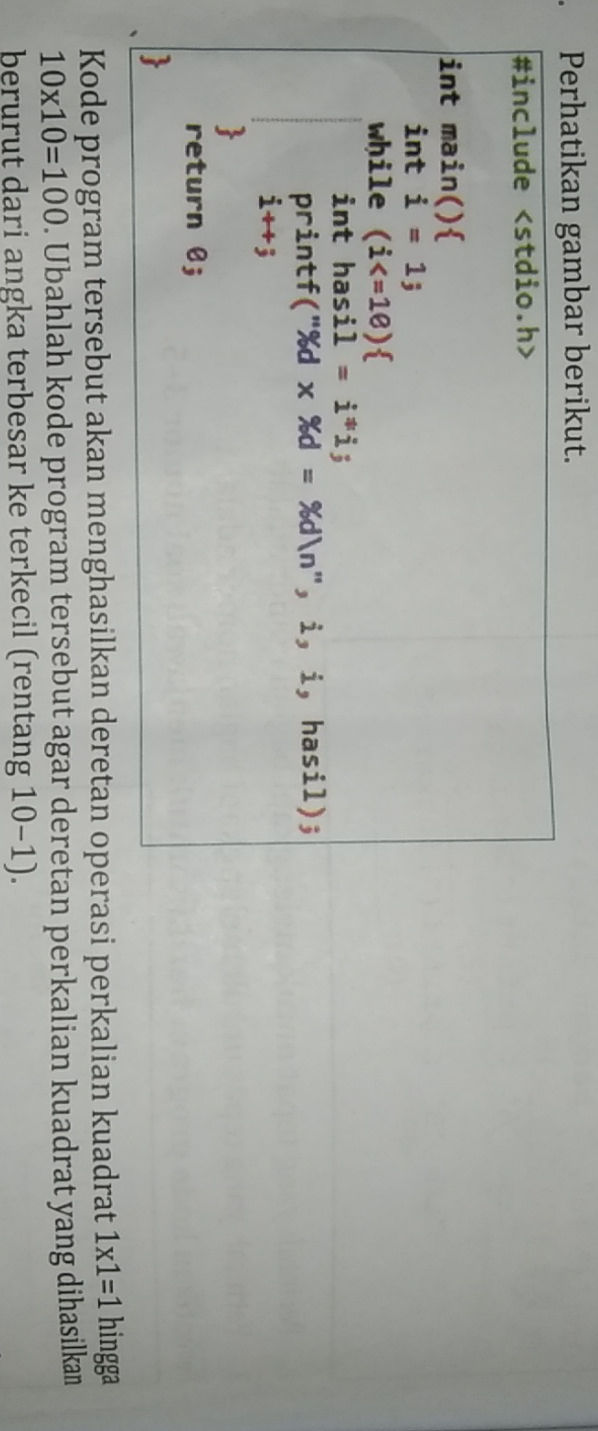 Perhatikan gambar berikut.
#include <stdio.h>
int main(){
int i = 1;
while (i<=10){
int hasil = i*i;
printf("%d x %d = %d\n", i, i, hasil);
i++;
}
return 0;
}
Kode program tersebut akan menghasilkan deretan operasi perkalian kuadrat 1x1=1 hingga
10x10=100. Ubahlah kode program tersebut agar deretan perkalian kuadrat yang dihasilkan
berurut dari angka terbesar ke terkecil (rentang 10–1).